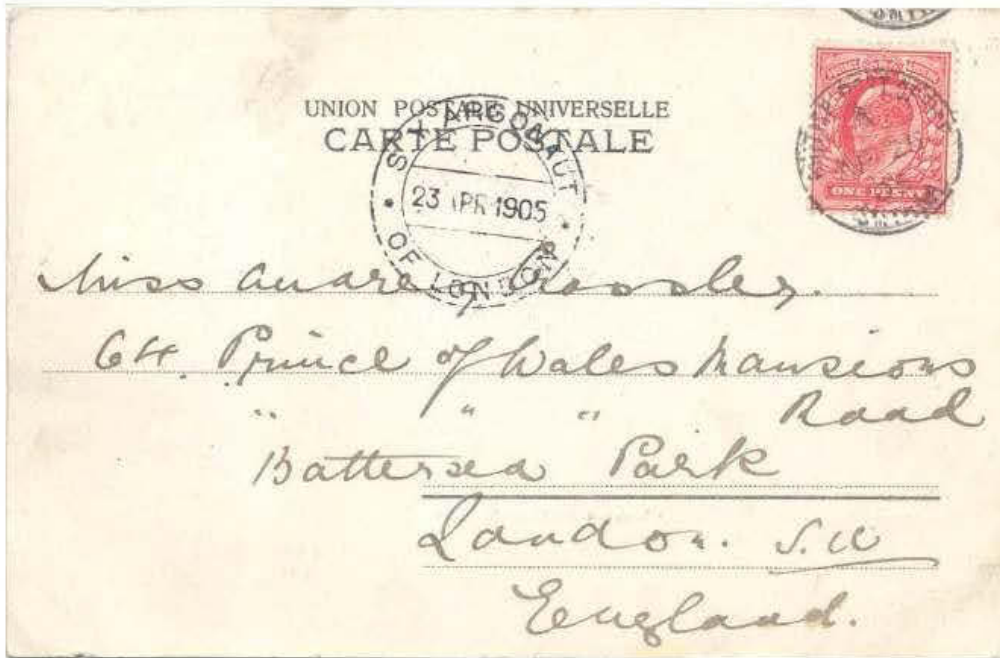 UNION POSTALE UNIVERSELLE
CARTE POSTALE
S. Y. ARGONAUT
23 APR 1905
OF LONDON
ONE PENNY
Miss Audrey Crossley.
64. Prince of Wales Mansions
" " " Road
Battersea Park
London. S.W
England.